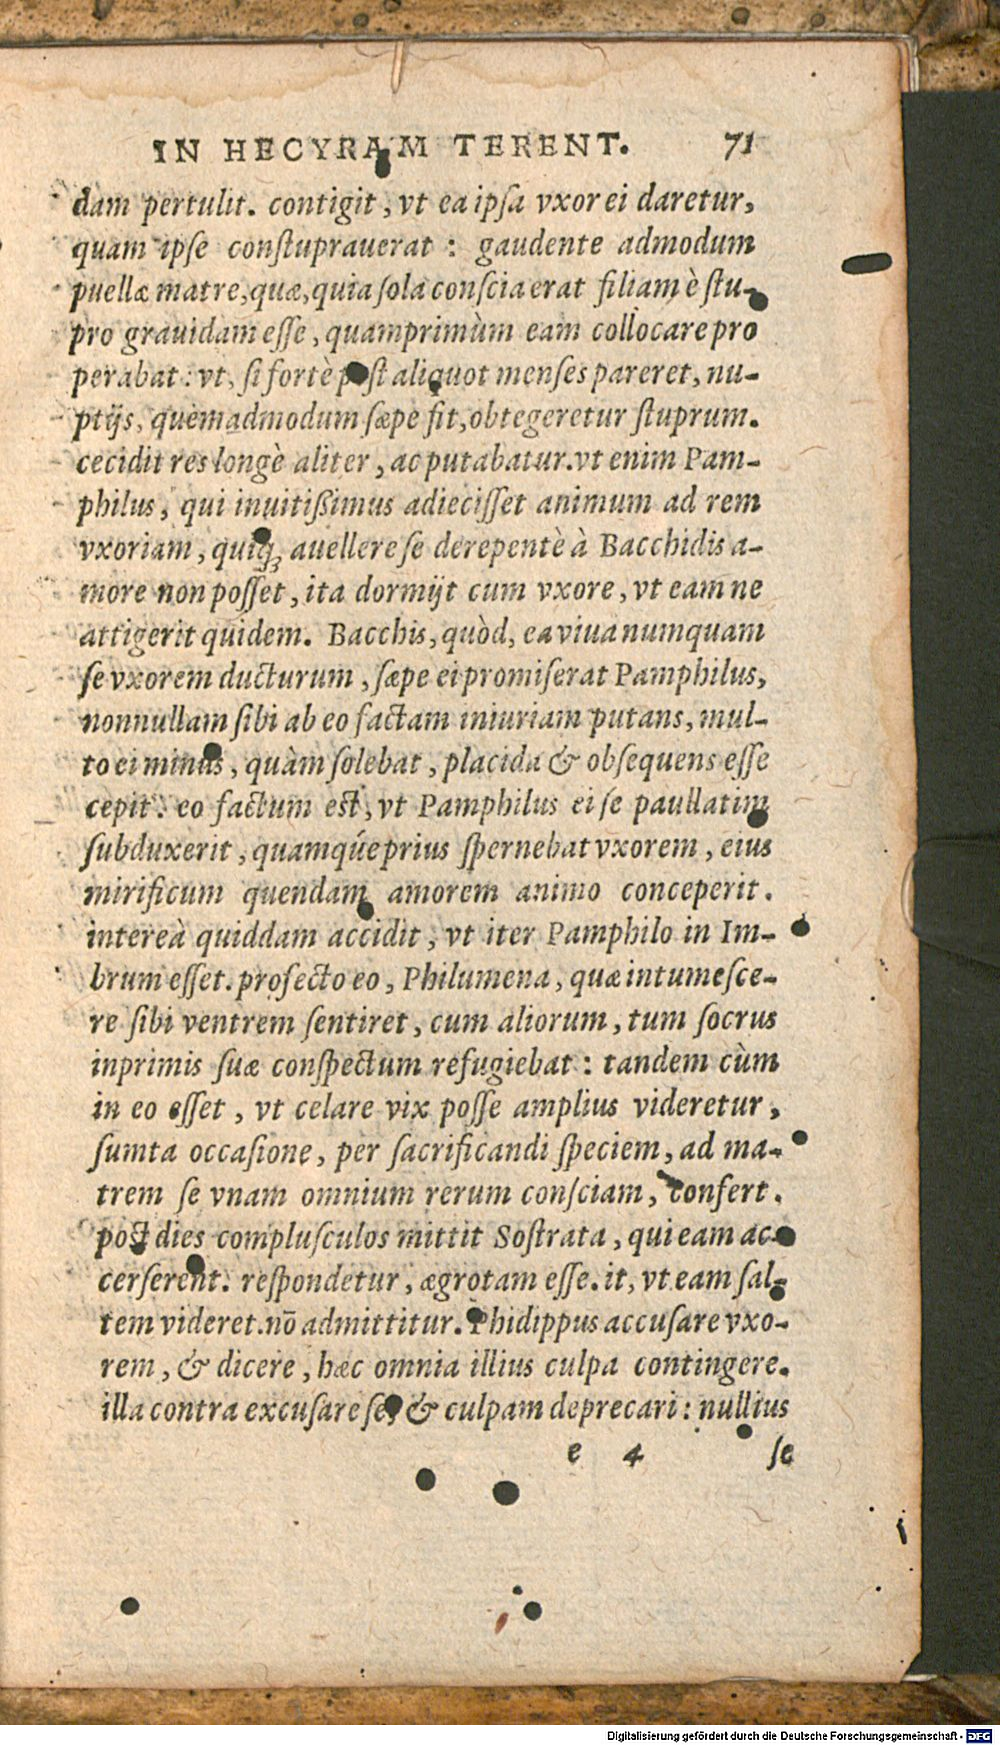 IN HECYRAM TERENT. 71
dam pertulit. contigit, vt ea ipſa vxor ei daretur,
quam ipſe conſtuprauerat : gaudente admodum
puellæ matre, quæ, quia ſola conſcia erat filiam è ſtu-
pro grauidam eſſe, quamprimùm eam collocare pro
perabat: vt, ſi fortè poſt aliquot menſes pareret, nu-
ptijs, quemadmodum ſæpe fit, obtegeretur ſtuprum.
cecidit res longè aliter, ac putabatur. vt enim Pam-
philus, qui inuitißimus adieciſſet animum ad rem
vxoriam, quiq; auellere ſe derepentè à Bacchidis a-
more non poſſet, ita dormijt cum vxore, vt eam ne
attigerit quidem. Bacchis, quòd, ea viua numquam
ſe vxorem ducturum, ſæpe ei promiſerat Pamphilus,
nonnullam ſibi ab eo factam iniuriam putans, mul-
to ei minus, quàm ſolebat, placida & obſequens eſſe
cepit. eo factum eſt, vt Pamphilus ei ſe paullatim
ſubduxerit, quamq́ue prius ſpernebat vxorem, eius
mirificum quendam amorem animo conceperit.
intereà quiddam accidit, vt iter Pamphilo in Im-
brum eſſet. profecto eo, Philumena, quæ intumeſce-
re ſibi ventrem ſentiret, cum aliorum, tum ſocrus
inprimis ſuæ conſpectum refugiebat : tandem cùm
in eo eſſet, vt celare vix poſſe amplius videretur,
ſumta occaſione, per ſacrificandi ſpeciem, ad ma-
trem ſe vnam omnium rerum conſciam, confert.
poſt dies compluſculos mittit Soſtrata, qui eam ac-
cerſerent. reſpondetur, ægrotam eſſe. it, vt eam ſal-
tem videret. nō admittitur. Phidippus accuſare vxo-
rem, & dicere, hæc omnia illius culpa contingere.
illa contra excuſare ſe, & culpam deprecari : nullius
e 4 ſe
Digitalisierung gefördert durch die Deutsche Forschungsgemeinschaft - DFG